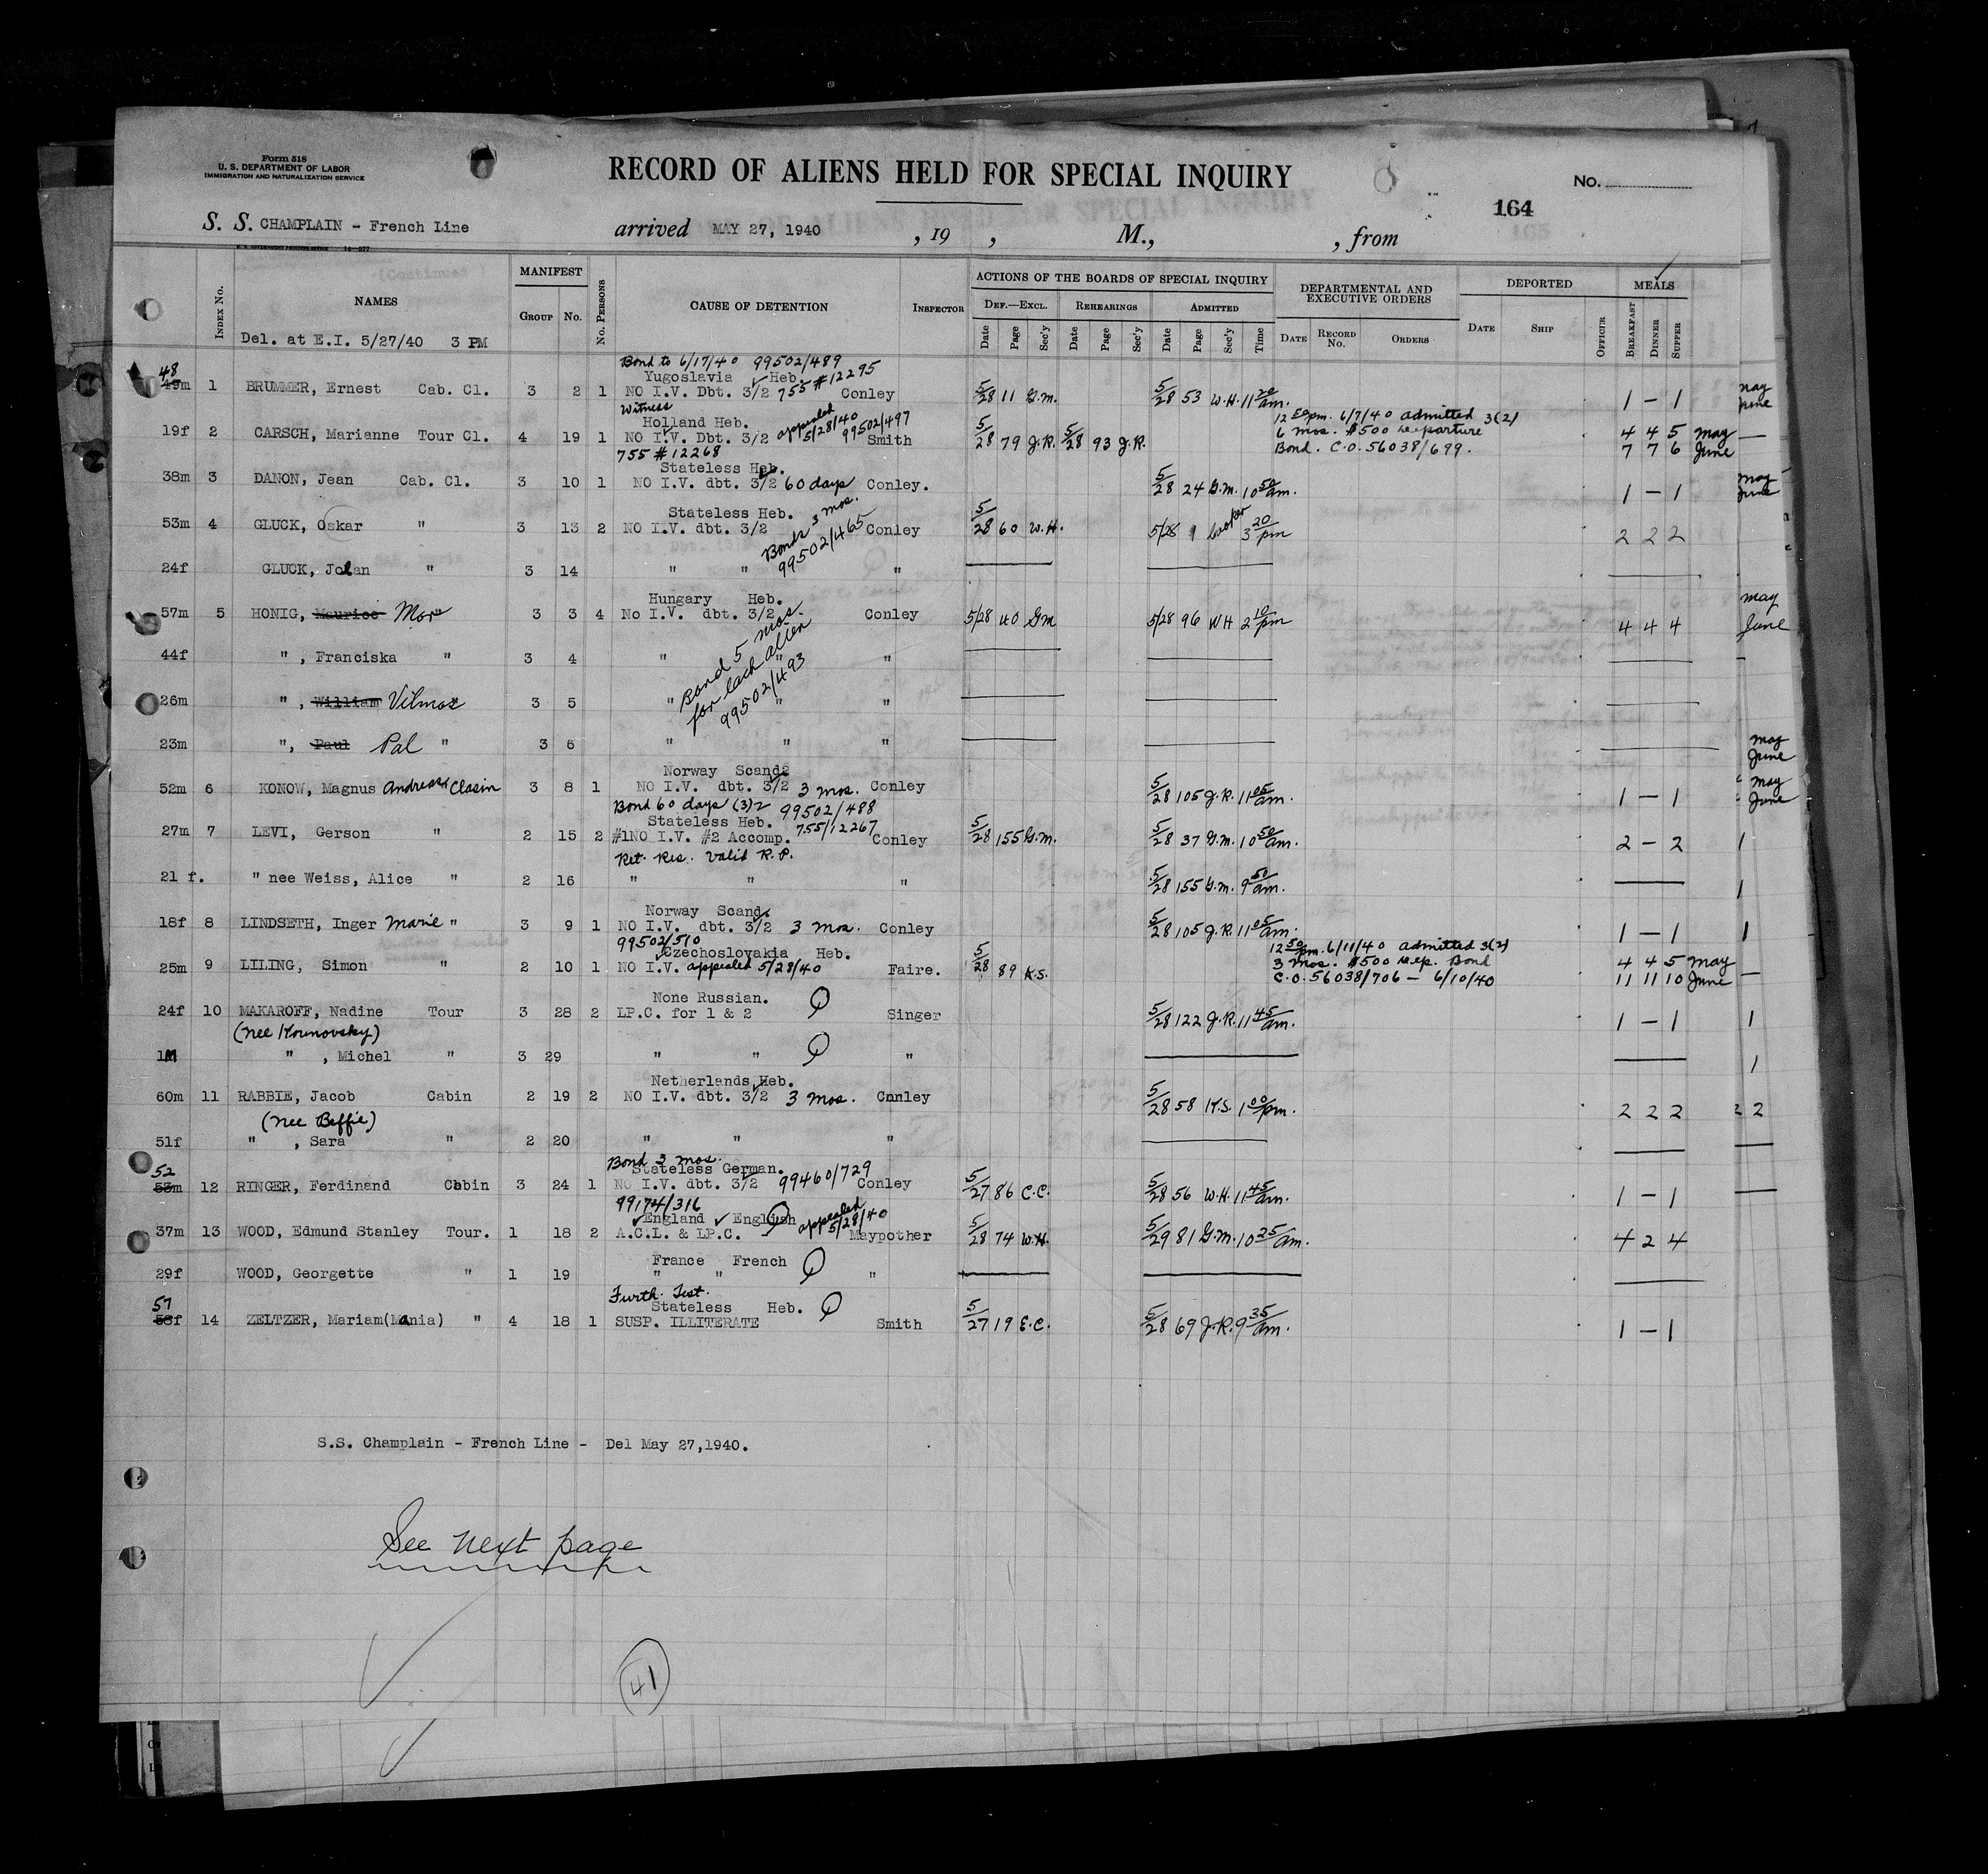 Form 518
U. S. DEPARTMENT OF LABOR
IMMIGRATION AND NATURALIZATION SERVICE
RECORD OF ALIENS HELD FOR SPECIAL INQUIRY
No.
164
S. S. CHAMPLAIN - French Line arrived MAY 27, 1940 , 19 , M., , from
INDEX No. NAMES MANIFEST GROUP No. No. PERSONS CAUSE OF DETENTION INSPECTOR ACTIONS OF THE BOARDS OF SPECIAL INQUIRY DEF.—EXCL. REHEARINGS ADMITTED DEPARTMENTAL AND EXECUTIVE ORDERS DEPORTED MEALS
Date Page Sec'y Date Page Sec'y Date Page Sec'y Time DATE RECORD No. ORDERS DATE SHIP OFFICER BREAKFAST DINNER SUPPER
Del. at E.I. 5/27/40 3 PM
Bond to 6/17/40 99502/489
Yugoslavia Heb.
48 49m 1 BRUMMER, Ernest Cab. Cl. 3 2 1 NO I.V. Dbt. 3/2 755 #12295 Conley 5/28 11 G.M. 5/28 53 W.H. 11 20 am. 1 - 1 May June
Witness
Holland Heb.
19f 2 CARSCH, Marianne Tour Cl. 4 19 1 NO I.V. Dbt. 3/2 appealed 5/28/40 99502/497 Smith 5/28 79 J.R. 5/28 93 J.R. 12 50 pm. 6/7/40 admitted 3(2) 4 4 5 May
755 #12268 6 mos. $500 departure
Bond. C.O. 56038/699. 7 7 6 June
Stateless Heb.
38m 3 DANON, Jean Cab. Cl. 3 10 1 NO I.V. dbt. 3/2 60 days Conley. 5/28 24 G.M. 10 50 am. 1 - 1 May June
Stateless Heb.
53m 4 GLUCK, Oskar " 3 13 2 NO I.V. dbt. 3/2 Bonds 3 mos. 99502/465 Conley 5/28 60 W.H. 5/28 1 Cooker 3 20 pm 2 2 2
24f GLUCK, Jolan " 3 14 " " "
Hungary Heb.
57m 5 HONIG, Maurice Mor " 3 3 4 No I.V. dbt. 3/2 Conley 5/28 40 GM 5/28 96 WH 2 10 pm 4 4 4 May June
Bond 5 mos. for each alien 99502/493
44f " , Franciska " 3 4 " " "
26m " , William Vilmos " 3 5 " " "
23m ", Paul Pal " 3 6 " " " May June
Norway Scand.
52m 6 KONOW, Magnus Andreas Clasin 3 8 1 NO I.V. dbt. 3/2 3 mos. Conley 5/28 105 J.R. 11 05 am. 1 - 1 May June
Bond 60 days (3)2 99502/488
Stateless Heb. 755/12267
27m 7 LEVI, Gerson " 2 15 2 #1NO I.V. #2 Accomp. Conley 5/28 155 G.M. 5/28 37 G.M. 10 50 am. 2 - 2 1
Ret. Res. Valid R.P.
21 f. " nee Weiss, Alice " 2 16 " " " 5/28 155 G.M. 9 50 am. 1
Norway Scand.
18f 8 LINDSETH, Inger Marie " 3 9 1 NO I.V. dbt. 3/2 3 mos. Conley 5/28 105 J.R. 11 05 am. 1 - 1 1
99502/510
Czechoslovakia Heb.
25m 9 LILING, Simon " 2 10 1 NO I.V. appealed 5/28/40 Faire. 5/28 89 K.S. 12 50 pm. 6/11/40 admitted 3(2) 4 4 5 May
3 mos. $500 dep. Bond
C.O. 56038/706 - 6/10/40 11 11 10 June
None Russian.
24f 10 MAKAROFF, Nadine Tour 3 28 2 LP.C. for 1 & 2 Singer 5/28 122 J.R. 11 45 am. 1 - 1 1
(nee Kounovsky)
1M " , Michel " 3 29 " " " 1
Netherlands Heb.
60m 11 RABBIE, Jacob Cabin 2 19 2 NO I.V. dbt. 3/2 3 mos. Conley 5/28 58 K.S. 1 00 pm. 2 2 2 2 2
(nee Beffie)
51f " , Sara " 2 20 " " "
Bond 3 mos.
Stateless German. 99460/729
52 53m 12 RINGER, Ferdinand Cabin 3 24 1 NO I.V. dbt. 3/2 Conley 5/27 86 C.C. 5/28 56 W.H. 11 45 am. 1 - 1
99174/316
England English
37m 13 WOOD, Edmund Stanley Tour. 1 18 2 A.C.L. & LP.C. appealed 5/28/40 Maypother 5/28 74 W.H. 5/29 81 G.M. 10 25 am. 4 2 4
France French
29f WOOD, Georgette " 1 19 " " "
Furth. Test.
Stateless Heb.
57 58f 14 ZELTZER, Mariam(Mania) " 4 18 1 SUSP. ILLITERATE Smith 5/27 19 E.C. 5/28 69 J.R. 9 35 am. 1 - 1
S.S. Champlain - French Line - Del May 27,1940.
See next page
41